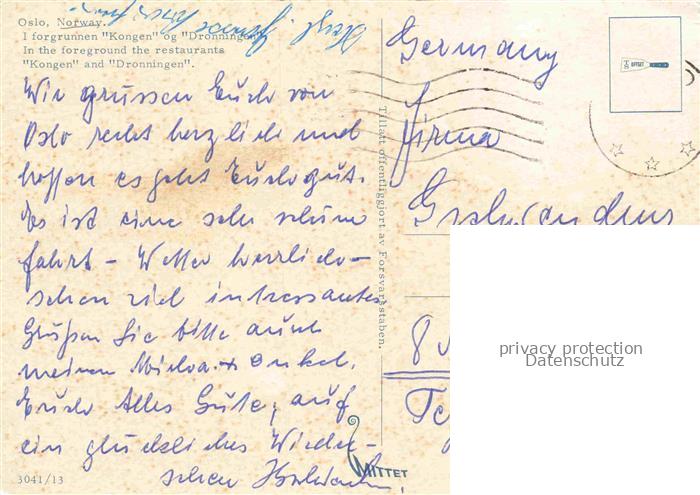 Oslo, Norway.
I forgrunnen "Kongen" og "Dronningen"
In the foreground the restaurants
"Kongen" and "Dronningen".
Wir grüssen Euch von
Oslo recht herzlich und
hoffen es geht Euch gut.
Es ist eine sehr schöne
Fahrt - Wetter herrlich -
sehen viel interessantes
Grüßen Sie bitte auch
meinen + Onkel.
Euch Alles Gute, auf
ein glückliches Wieder-
sehen
3041/13
MITTET
Tillatt offentliggjort av Forsvarsstaben.
OFFSET
Germany
Firma
Gschwandner
8
privacy protection
Datenschutz